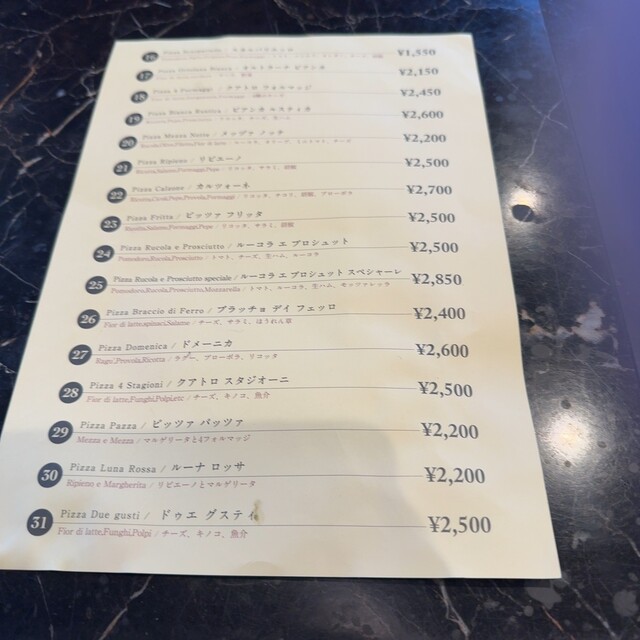 16 ¥1,550
17 ¥2,150
18 Pizza 4 Formaggi / クアトロ フォルマッジ ¥2,450
19 Pizza Bianca Rustica / ビアンカ ルスティカ ¥2,600
20 Pizza Mezza Notte / メッヅァ ノッテ ¥2,200
21 Pizza Ripieno / リピエーノ ¥2,500
Ricotta,Salame,Formaggi,Pepe / リコッタ、サラミ、胡椒
22 Pizza Calzone / カルツォーネ ¥2,700
23 Pizza Fritta / ピッツァ フリッタ ¥2,500
Ricotta,Salame,Formaggi,Pepe / リコッタ、サラミ、胡椒
24 Pizza Rucola e Prosciutto / ルーコラ エ プロシュット ¥2,500
Pomodoro,Rucola,Prosciutto / トマト、チーズ、生ハム、ルーコラ
25 Pizza Rucola e Prosciutto speciale / ルーコラ エ プロシュット スペシャーレ ¥2,850
Pomodoro,Rucola,Prosciutto,Mozzarella / トマト、ルーコラ、生ハム、モッツァレッラ
26 Pizza Braccio di Ferro / ブラッチョ デイ フェッロ ¥2,400
Fior di latte,Spinaci,Salame / チーズ、サラミ、ほうれん草
27 Pizza Domenica / ドメーニカ ¥2,600
Ragu',Provola,Ricotta / ラグー、プローボラ、リコッタ
28 Pizza 4 Stagioni / クアトロ スタジオーニ ¥2,500
Fior di latte,Funghi,Polpi,etc / チーズ、キノコ、魚介
29 Pizza Pazza / ピッツァ パッツァ ¥2,200
Mezza e Mezza / マルゲリータと4フォルマッジ
30 Pizza Luna Rossa / ルーナ ロッサ ¥2,200
Ripieno e Margherita / リピエーノとマルゲリータ
31 Pizza Due gusti / ドゥエ グスティ ¥2,500
Fior di latte,Funghi,Polpi / チーズ、キノコ、魚介